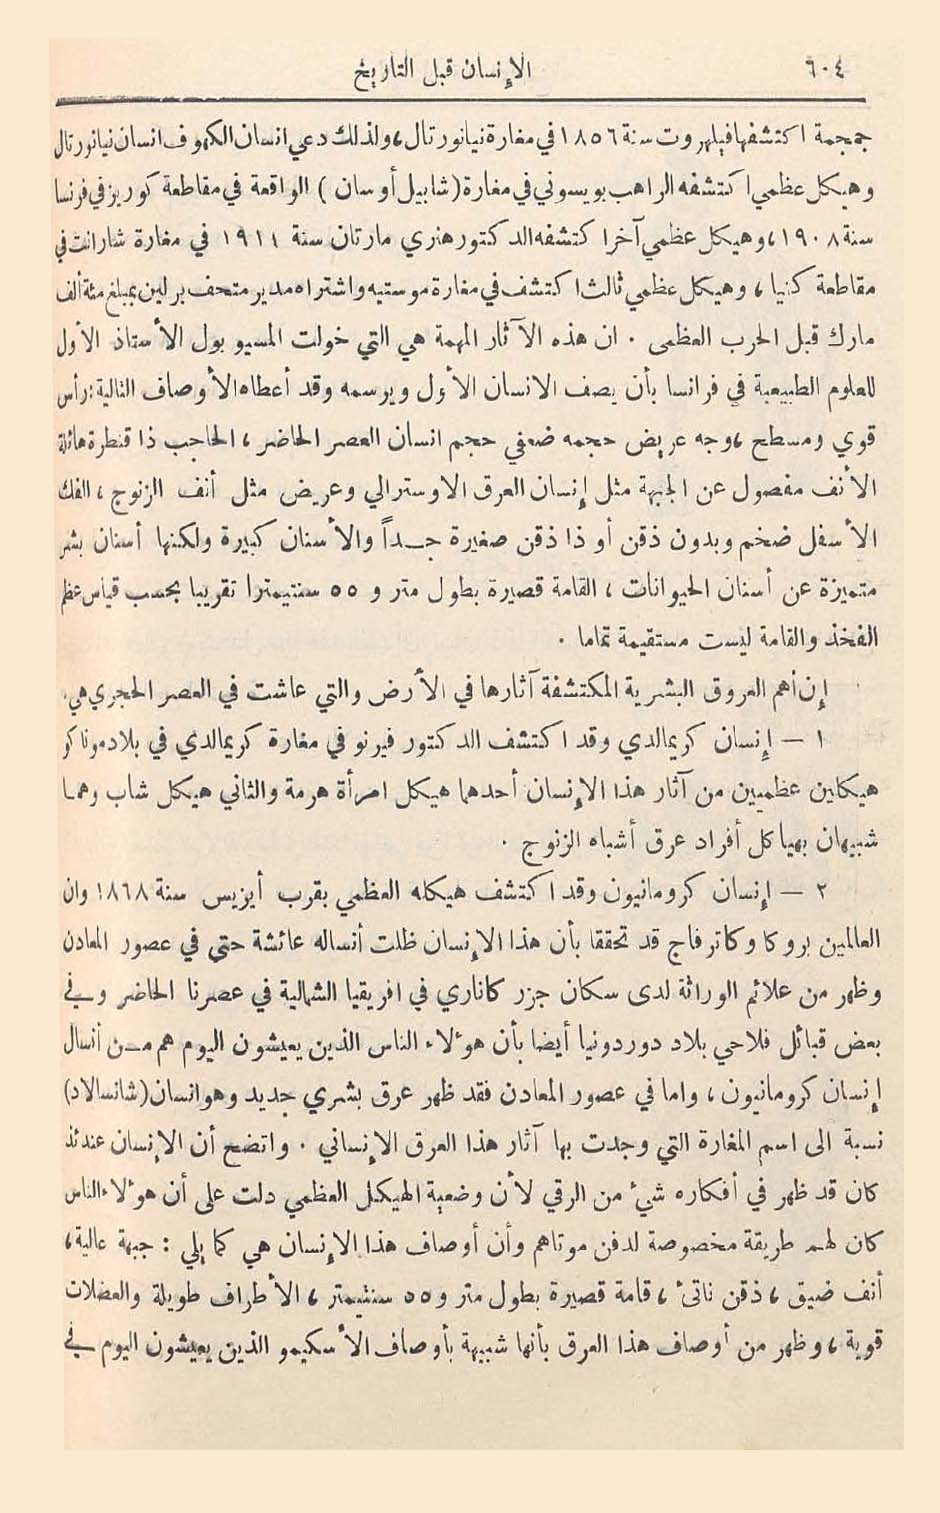 ٦٠٤
الإنسان قبل التاريخ
جمجمة اكتشفها فيلهروت سنة ١٨٥٦ في مغارة نيانورتال، ولذلك دعي انسان الكهوف انسان نيانورتال
وهيكل عظمي اكتشفه الراهب بويسوني في مغارة (شابيل أوسان) الواقعة في مقاطعة كوريز في فرنسا
سنة ١٩٠٨، وهيكل عظمي آخر اكتشفه الدكتور هنري مارتان سنة ١٩١١ في مغارة شارانت في
مقاطعة كنيا، وهيكل عظمي ثالث اكتشف في مغارة موستيه واشتراه مدير متحف برلين بمبلغ مئة ألف
مارك قبل الحرب العظمى. ان هذه الآثار المهمة هي التي خولت المسيو بول الأستاذ الأول
للعلوم الطبيعية في فرانسا بأن يصف الانسان الأول ويرسمه وقد أعطاه الأوصاف التالية: رأس
قوي ومسطح، وجه عريض حجمه ضعفي حجم انسان العصر الحاضر، الحاجب ذا قنطرة هائلة
الأنف مفصول عن الجبهة مثل إنسان العرق الاوسترالي وعريض مثل أنف الزنوج، الفك
الأسفل ضخم وبدون ذقن أو ذا ذقن صغيرة جداً والأسنان كبيرة ولكنها أسنان بشر
متميزة عن أسنان الحيوانات، القامة قصيرة بطول متر و ٥٥ سنتيمترا تقريبا بحسب قياس عظم
الفخذ والقامة ليست مستقيمة تماما.
إن أهم العروق البشرية المكتشفة آثارها في الأرض والتي عاشت في العصر الحجري هي:
١ — إنسان كريمالدي وقد اكتشف الدكتور فيرنو في مغارة كريمالدي في بلاد موناكو
هيكلين عظميين من آثار هذا الإنسان أحدهما هيكل امرأة هرمة والثاني هيكل شاب وهما
شبيهان بهياكل أفراد عرق أشباه الزنوج.
٢ — إنسان كرومانيون وقد اكتشف هيكله العظمي بقرب أيزيس سنة ١٨٦٨ وان
العالمين بروكا وكاترفاج قد تحققا بأن هذا الإنسان ظلت أنساله عائشة حتى في عصور المعادن
وظهر من علائم الوراثة لدى سكان جزر كاناري في افريقيا الشمالية في عصرنا الحاضر وفي
بعض قبائل فلاحي بلاد دوردونيا أيضا بأن هولاء الناس الذين يعيشون اليوم هم من أنسال
إنسان كرومانيون، واما في عصور المعادن فقد ظهر عرق بشري جديد وهو انسان (شانسالاد)
نسبة الى اسم المغارة التي وجدت بها آثار هذا العرق الإنساني. واتضح أن الإنسان عندئذ
كان قد ظهر في أفكاره شيء من الرقي لأن وضعية الهيكل العظمي دلت على أن هولاء الناس
كان لهم طريقة مخصوصة لدفن موتاهم وأن أوصاف هذا الإنسان هي كما يلي: جبهة عالية،
أنف ضيق، ذقن ناتئ، قامة قصيرة بطول متر و ٥٥ سنتيمتر، الأطراف طويلة والعضلات
قوية، وظهر من أوصاف هذا العرق بأنها شبيهة بأوصاف الأسكيمو الذين يعيشون اليوم في